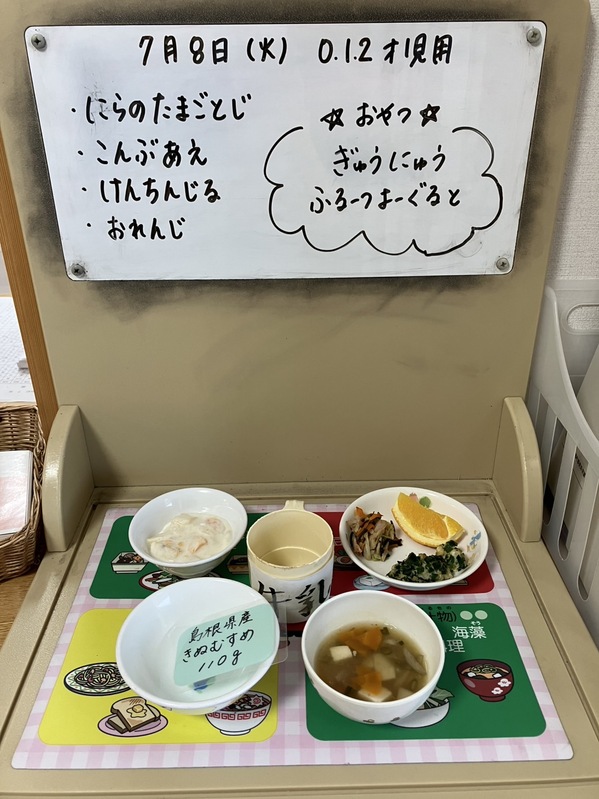 7月8日(火) 0.1.2才児用
・にらのたまごとじ
・こんぶあえ
・けんちんじる
・おれんじ
☆おやつ☆
ぎゅうにゅう
ふるーつよーぐると
牛乳
島根県産
きぬむすめ
110g
物)
海藻
そう
理